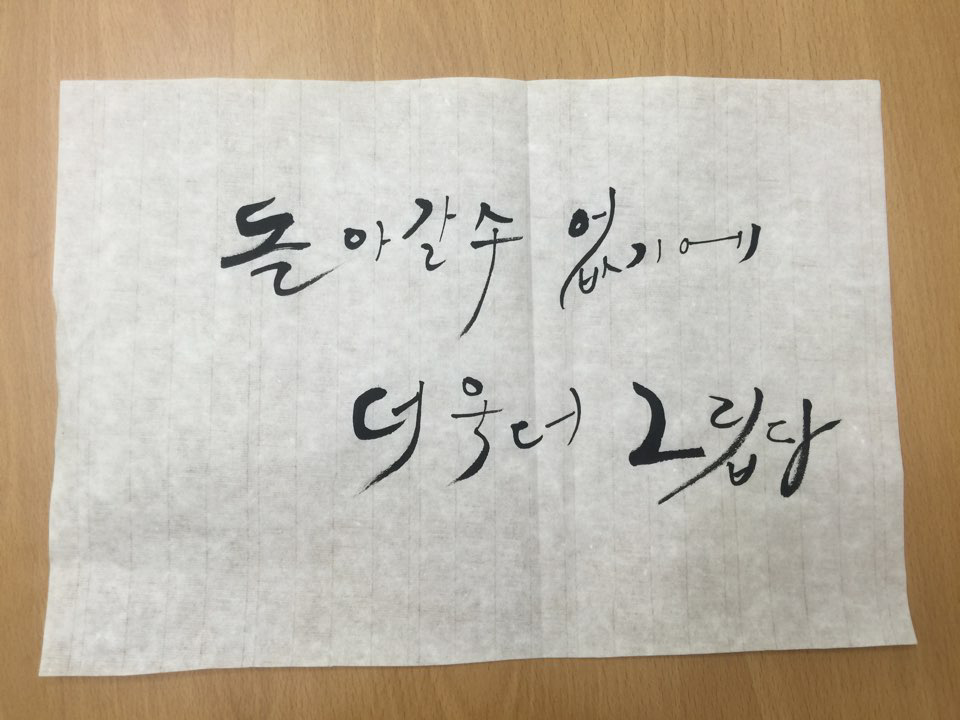 돌아갈수 없기에
더욱더 그립다